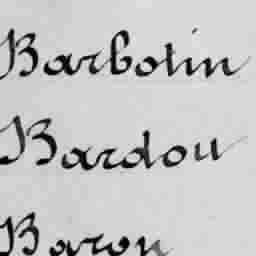 Barbotin
Bardou
Baron